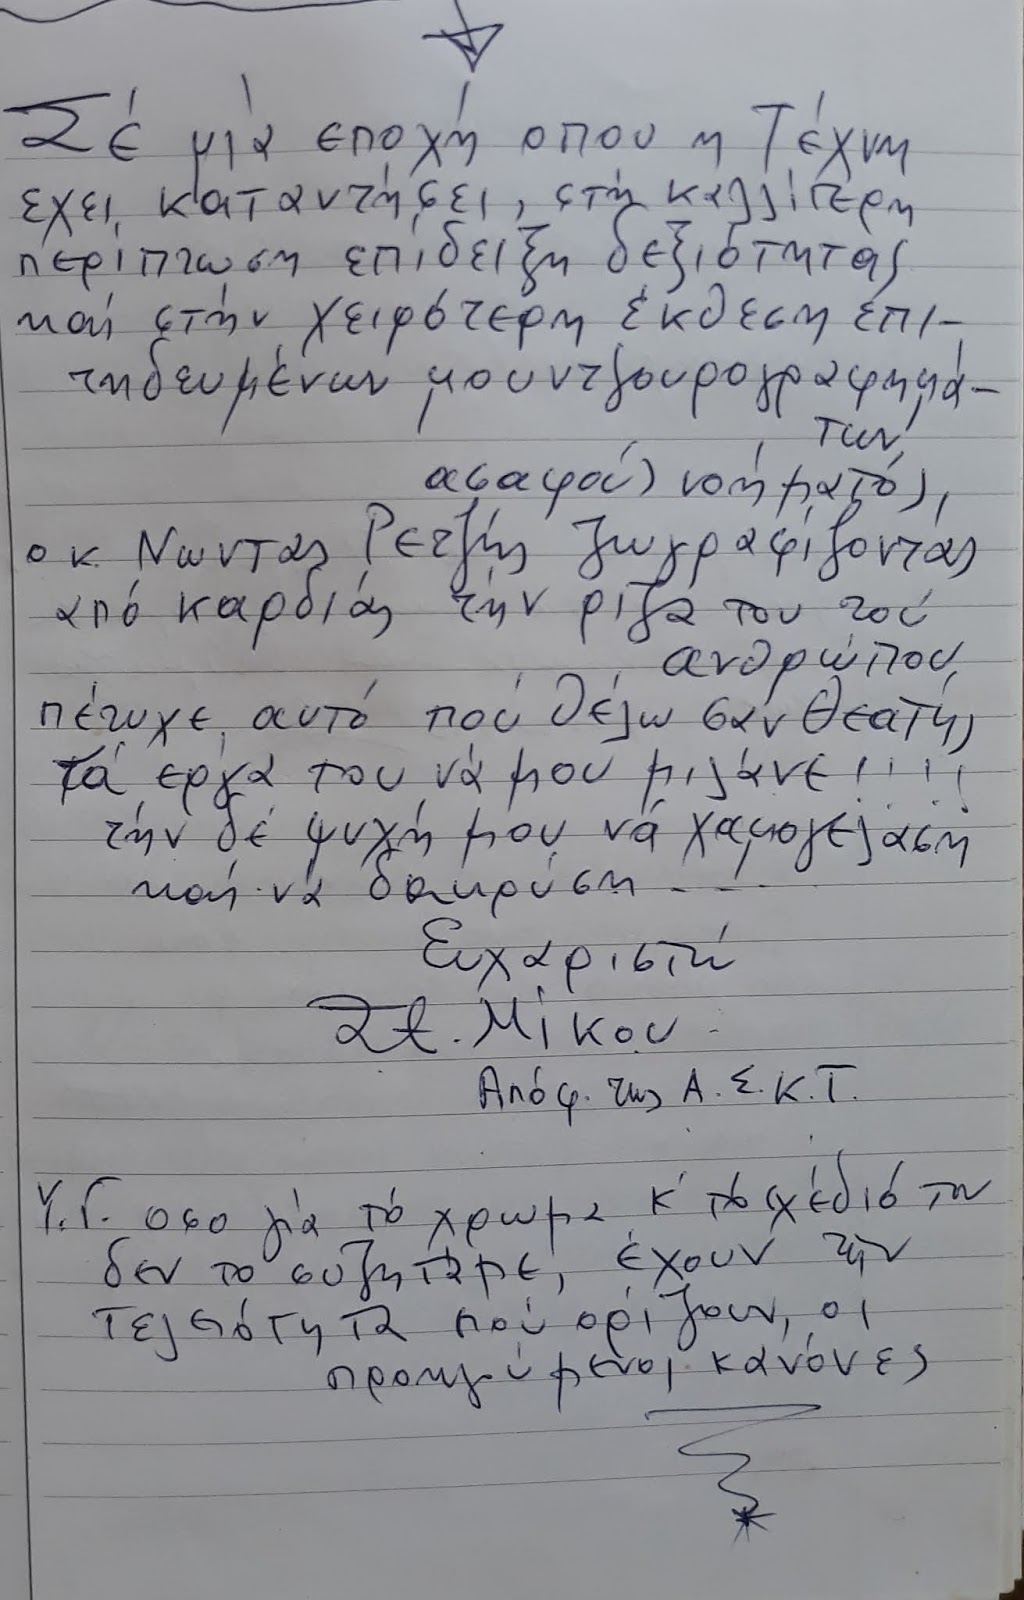 Σέ μιά εποχή οπου η Τέχνη
έχει καταντήσει, στή καλλίτερη
περίπτωση επίδειξη δεξιότητας
καί στήν χειρότερη έκθεση επι-
τηδευμένων μουντζουρογραφημά-
των,
ασαφούς νοήματός,
ο κ. Νώντας Ρετζής ζωγραφίζοντας
από καρδιάς τήν ρίζα του τού
ανθρώπου,
πέτυχε αυτό πού θέλω σάν θεατής
τά έργα του νά μου μιλάνε!!!!
τήν δέ ψυχή μου νά χαμογελάση
καί νά δακρύση - - -
Ευχαριστώ
Στ. Μίκου
Απόφ. της Α.Σ.Κ.Τ.
Υ.Γ. οσο γιά τό χρωμα κ' τό σχέδιό του
δεν το συζητάμε, έχουν τήν
τελειότητα πού ορίζουν, οι
προηγούμενοι κανόνες